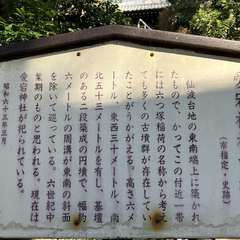 (市指定・史跡)
仙波台地の東南端上に築かれ
たもので、かつてこの付近一帯
には六つ塚稲荷の名称から考え
ても多くの古墳群が存在してい
たことがうかがえる。高さ六メ
ートル、東西三十メートル、南
北五十三メートルを有し、基壇
のある二段築成の円墳で、幅約
六メートルの周溝が東南の斜面
を除いて巡っている。六世紀中
葉期のものと思われる。現在は
愛宕神社が祀られている。
昭和六十三年三月